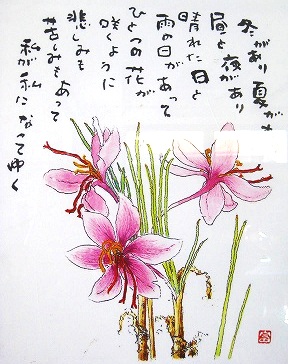 冬があり 夏があ
昼と 夜があり
晴れた 日と
雨の日が あって
ひとつの 花が
咲くように
悲しみも
苦しみもあって
私が 私に なってゆく
富